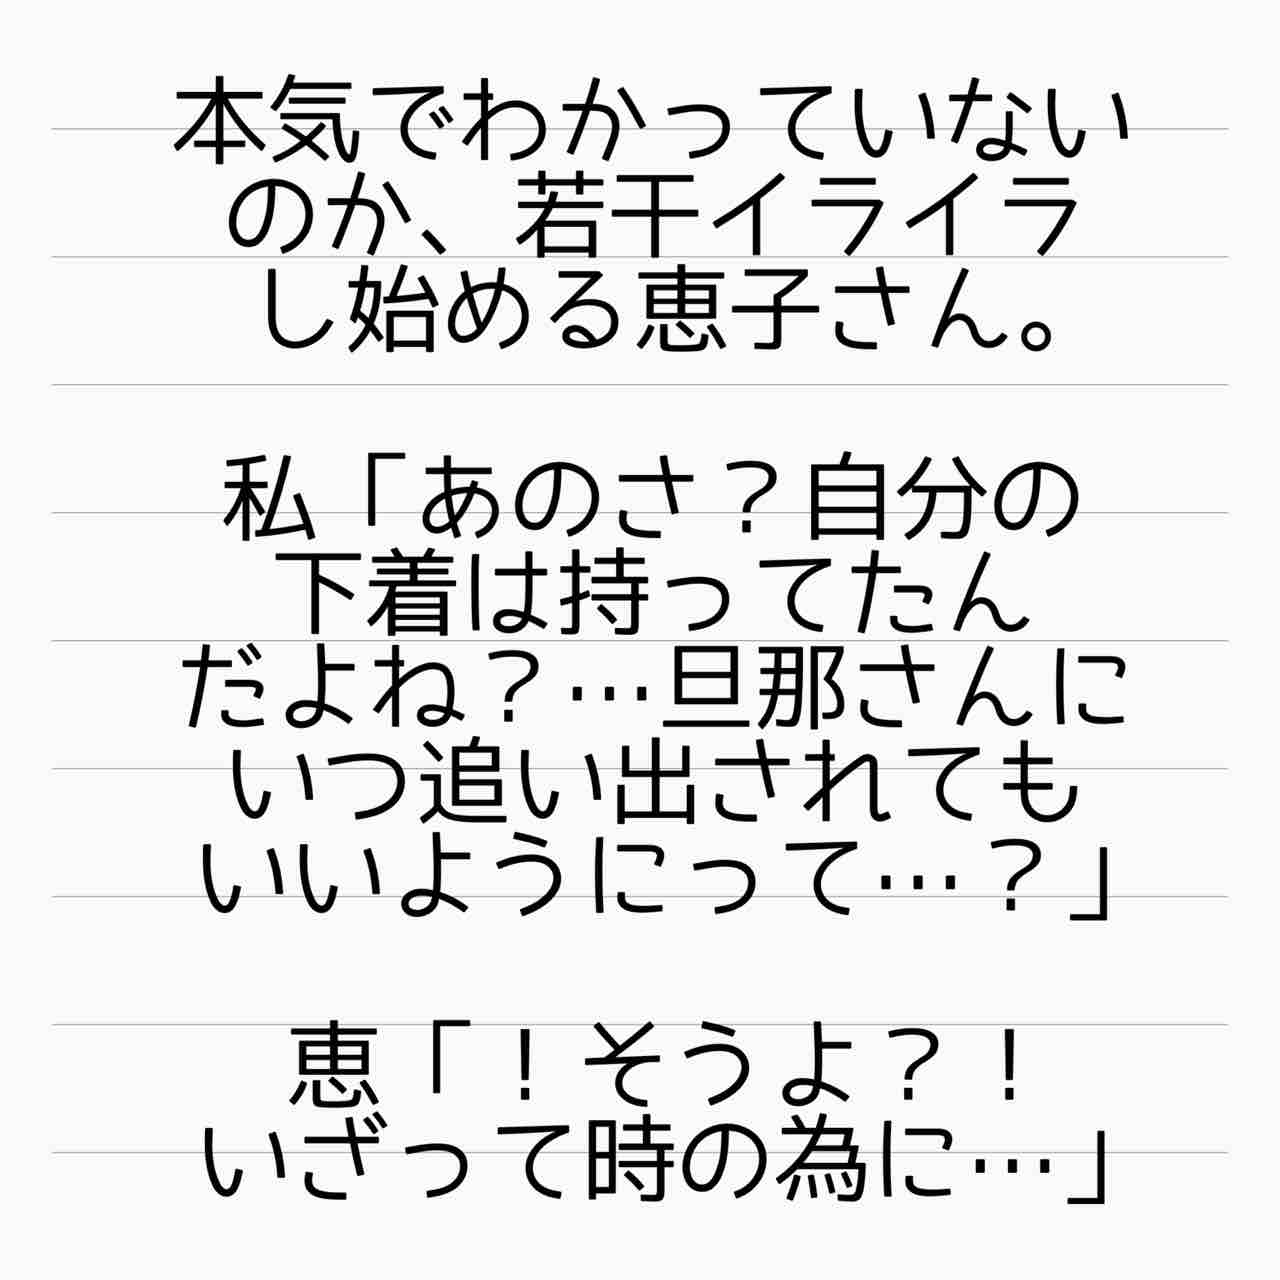 本気でわかっていない
のか、若干イライラ
し始める恵子さん。
私「あのさ？自分の
下着は持ってたん
だよね？…旦那さんに
いつ追い出されても
いいようにって…？」
恵「！そうよ？！
いざって時の為に…」